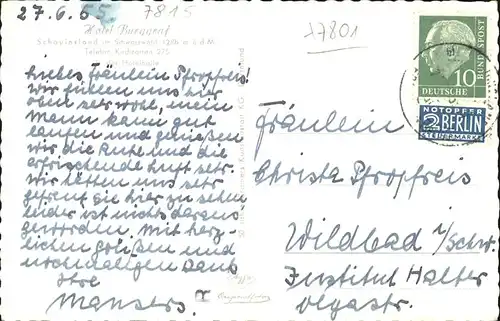 27.6.55.
7815
17801
Hotel Burggraf
Schauinsland im Schwarzwald
Telefon Kirchzarten 275
Bes.
Liebes Fräulein Pfropfreis!
wir fühlen uns hier
oben ser wohl, mein
Mann kann gut
laufen und geniesen
wir die Ruhe und die
erfrischende Luft sehr.
Wir hätten uns sehr
gefreut sie hier zu sehen
leider ist nichts daraus
geworden. Mit herz-
lichen grüßen und
nochmaligen Dank
Ihre
Mansers.
10
DEUTSCHE
BUNDESPOST
NOTOPFER
2 BERLIN
STEUERMARKE
Fräulein
Christa Pfropfreis
Wildbad i/Schw.
Institut Halter
Olgastr.